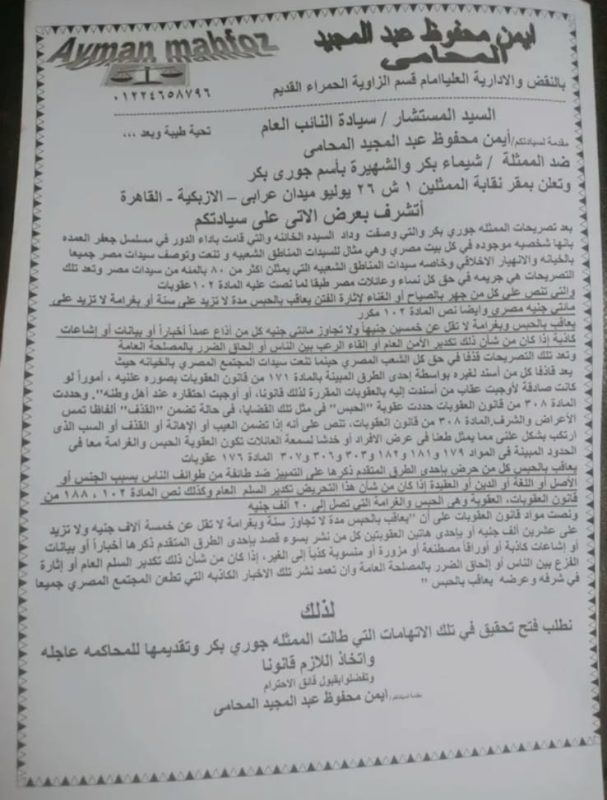 ايمن محفوظ عبد المجيد
Ayman mahfoz
المحامى
بالنقض والادارية العليا امام قسم الزاوية الحمراء القديم
٠١٢٢٤٦٥٨٧٩٦
السيد المستشار / سيادة النائب العام
تحية طيبة وبعد ...
مقدمة لسيادتكم/أيمن محفوظ عبد المجيد المحامى
ضد الممثلة / شيماء بكر والشهيرة بأسم جورى بكر
وتعلن بمقر نقابة الممثلين ١ ش ٢٦ يوليو ميدان عرابى – الازبكية - القاهرة
أتشرف بعرض الاتى على سيادتكم
بعد تصريحات الممثله جوري بكر والتي وصفت وداد السيده الخائنه والتي قامت باداء الدور في مسلسل جعفر العمده
بانها شخصيه موجوده في كل بيت مصري وهي مثال للسيدات المناطق الشعبيه و تنعت وتوصف سيدات مصر جميعا
بالخيانه والانهيار الاخلاقي وخاصه سيدات المناطق الشعبيه التي يمثلن اكثر من ٨٠ بالمئه من سيدات مصر وتعد تلك
التصريحات هي جريمه في حق كل نساء وعائلات مصر طبقا لما نصت عليه الماده ١٠٢ عقوبات
والتي تنص على كل من جهر بالصياح أو الغناء لإثارة الفتن يعاقب بالحبس مدة لا تزيد على سنة أو بغرامة لا تزيد على
مائتي جنيه مصري وايضا نص الماده ١٠٢ مكرر
يعاقب بالحبس وبغرامة لا تقل عن خمسين جنيهاً ولا تجاوز مائتي جنيه كل من أذاع عمداً أخباراً أو بيانات أو إشاعات
كاذبة إذا كان من شأن ذلك تكدير الأمن العام أو إلقاء الرعب بين الناس أو إلحاق الضرر بالمصلحة العامة
وتعد تلك التصريحات قذفا في حق كل الشعب المصري حينما تنعت سيدات المجتمع المصري بالخيانه حيث
يعد قاذفا كل من أسند لغيره بواسطة إحدى الطرق المبينة بالمادة ١٧١ من قانون العقوبات بصوره علنيه ، أموراً لو
كانت صادقة لأوجبت عقاب من أسندت إليه بالعقوبات المقررة لذلك قانونا، أو أوجبت احتقاره عند أهل وطنه". وحددت
المادة ٣٠٨ من قانون العقوبات حددت عقوبة "الحبس" فى مثل تلك القضايا، فى حالة تضمن "القذف" ألفاظا تمس
الأعراض والشرف.المادة ٣٠٨ من قانون العقوبات، تنص على أنه إذا تضمن العيب أو الإهانة أو القذف أو السب الذى
ارتكب بشكل علنى مما يمثل طعنا فى عرض الافراد أو خدشا لسمعة العائلات تكون العقوبة الحبس والغرامة معا فى
الحدود المبينة فى المواد ١٧٩ و١٨١ و١٨٢ و٣٠٣ و٣٠٦ و٣٠٧ الماده ١٧٦ عقوبات
يعاقب بالحبس كل من حرض بإحدى الطرق المتقدم ذكرها على التمييز ضد طائفة من طوائف الناس بسبب الجنس أو
الأصل أو اللغة أو الدين أو العقيدة إذا كان من شأن هذا التحريض تكدير السلم العام وكذلك نص المادة ١٠٢ ، ١٨٨ من
قانون العقوبات، العقوبة وهى الحبس والغرامة التى تصل إلى ٢٠ ألف جنيه
ونصت مواد قانون العقوبات على أن "يعاقب بالحبس مدة لا تجاوز سنة وبغرامة لا تقل عن خمسة آلاف جنيه ولا تزيد
على عشرين ألف جنيه أو بإحدى هاتين العقوبتين كل من نشر بسوء قصد بإحدى الطرق المتقدم ذكرها أخباراً أو بيانات
أو إشاعات كاذبة أو أوراقاً مصطنعة أو مزورة أو منسوبة كذباً إلى الغير، إذا كان من شأن ذلك تكدير السلم العام أو إثارة
الفزع بين الناس أو إلحاق الضرر بالمصلحة العامة وان تعمد نشر تلك الاخبار الكاذبه التي تطعن المجتمع المصري جميعا
في شرفه وعرضه يعاقب بالحبس "
لذلك
نطلب فتح تحقيق في تلك الاتهامات التي طالت الممثله جوري بكر وتقديمها للمحاكمه عاجله
واتخاذ اللازم قانونا
وتفضلوا بقبول فائق الاحترام
مقدمة لسيادتكم/ ايمن محفوظ عبد المجيد المحامى